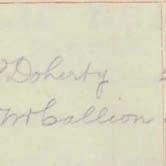 Doherty
McCallion